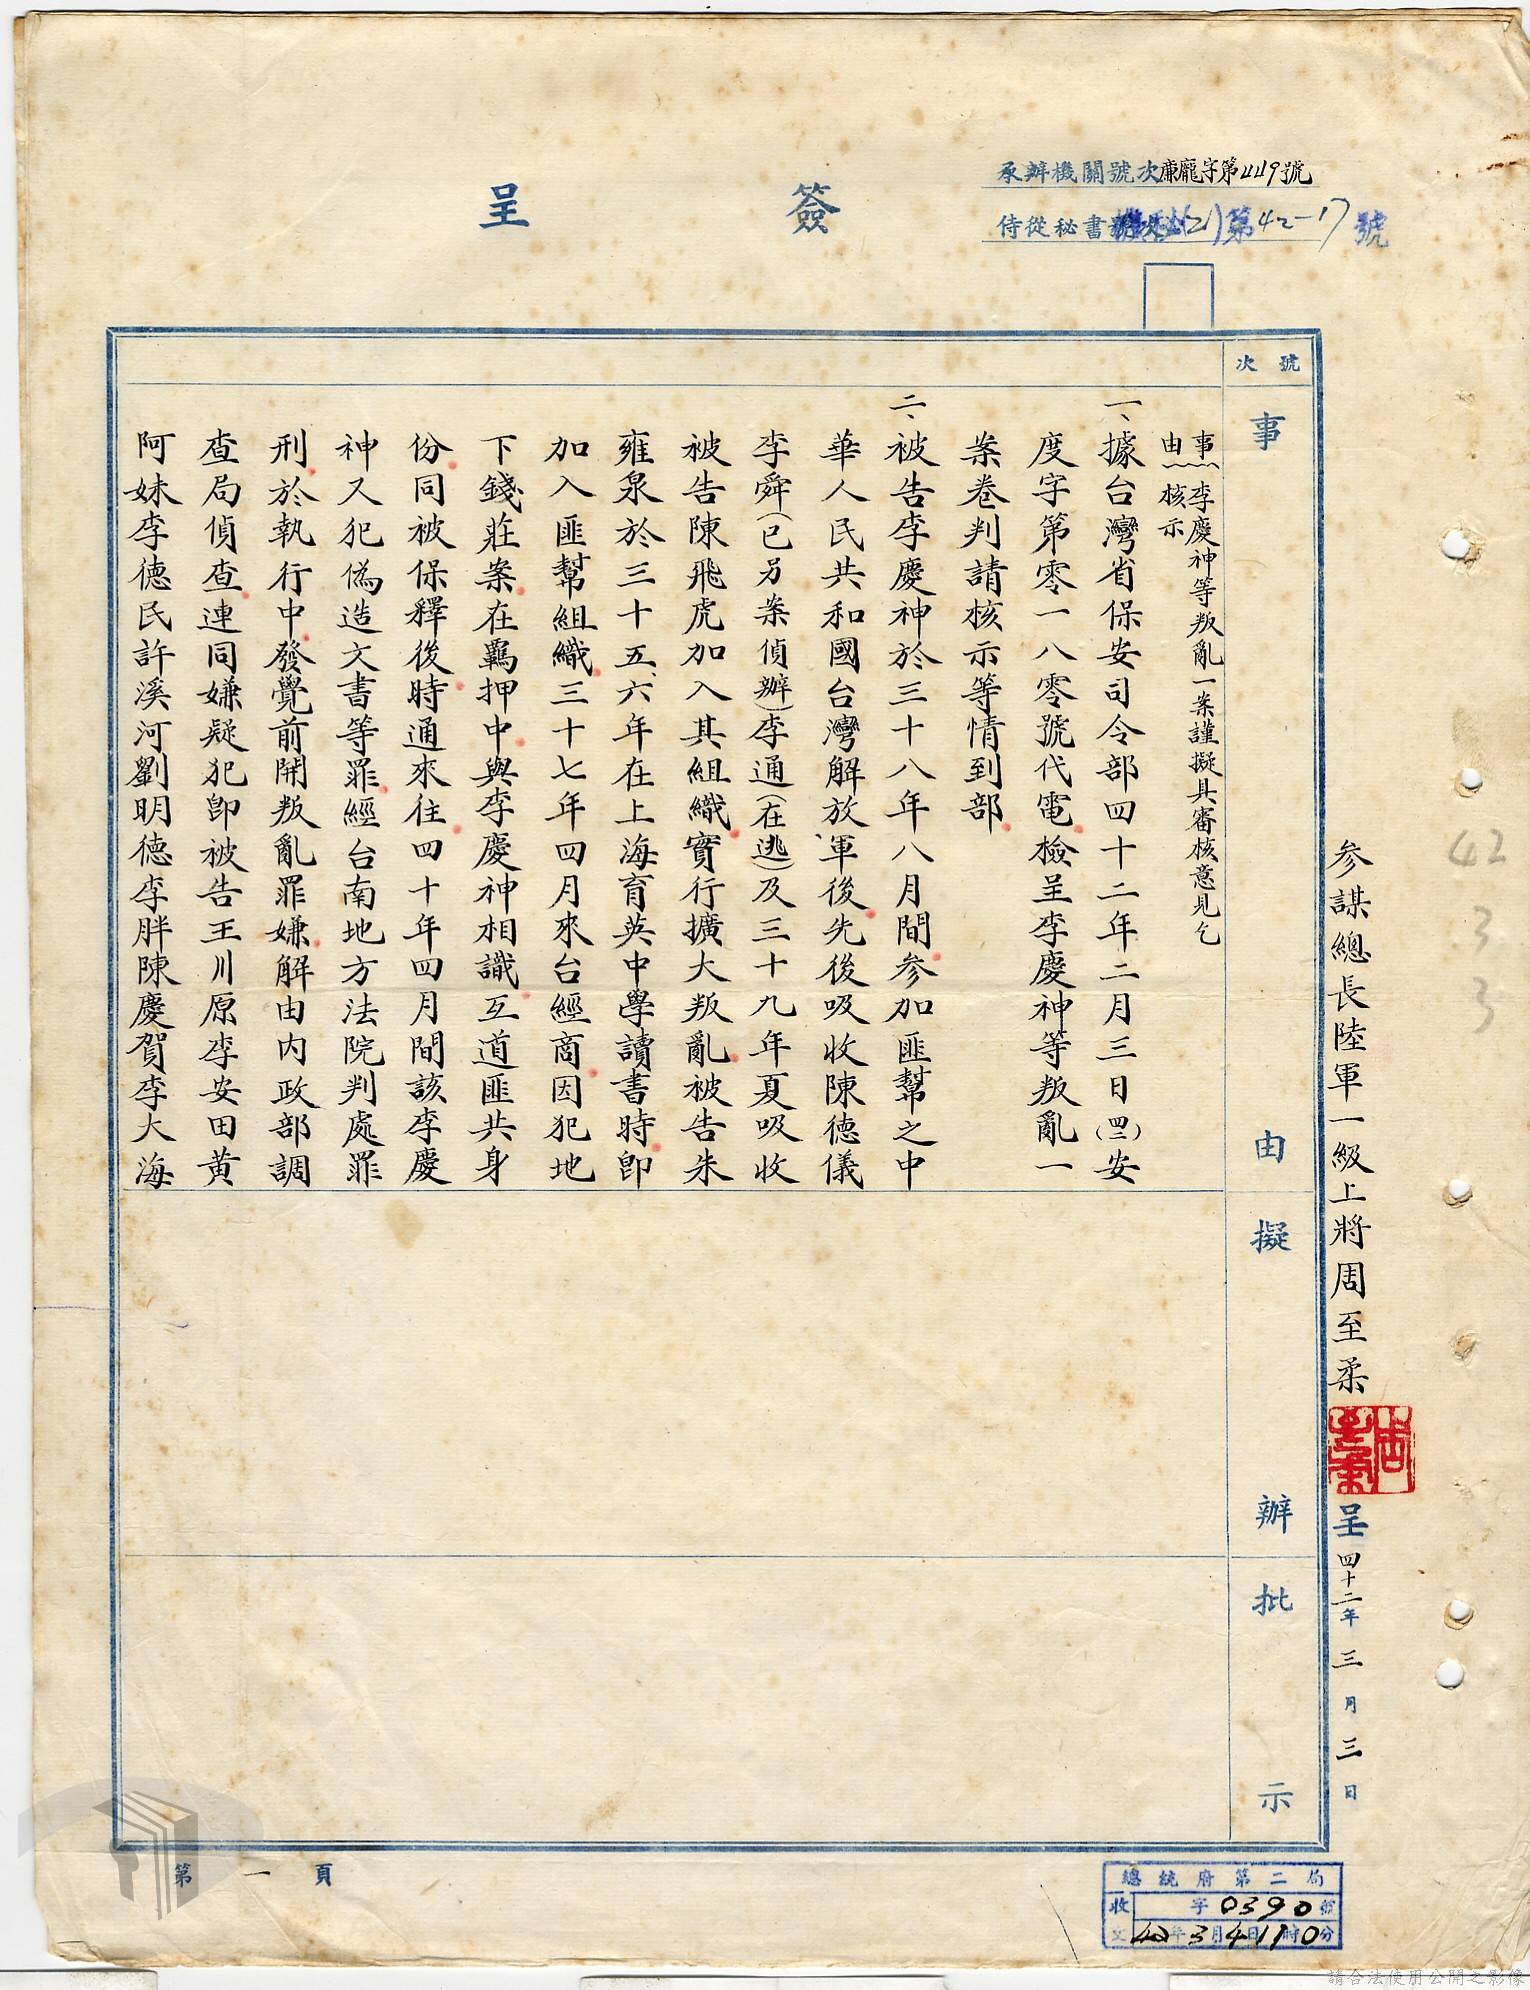 簽呈
承辦機關號次廉龐字第449號
侍從秘書(2)第42-17號
號次
事由
擬辦
批示
事由 李慶神等叛亂一案謹擬具審核意見乞
核示
一、據台灣省保安司令部四十二年二月三日(四二)安
度字第零一八零號代電檢呈李慶神等叛亂一
案卷判請核示等情到部
二、被告李慶神於三十八年八月間參加匪幫之中
華人民共和國台灣解放軍後先後吸收陳德儀
李舜(已另案偵辦)李通(在逃)及三十九年夏吸收
被告陳飛虎加入其組織實行擴大叛亂被告朱
雍泉於三十五、六年在上海育英中學讀書時即
加入匪幫組織三十七年四月來台經商因犯地
下錢莊案在羈押中與李慶神相識互道匪共身
份同被保釋後時通來往四十年四月間該李慶
神又犯偽造文書等罪經台南地方法院判處罪
刑於執行中發覺前開叛亂罪嫌解由內政部調
查局偵查連同嫌疑犯即被告王川原李安田黃
阿妹李德民許溪河劉明德李胖陳慶賀李大海
參謀總長陸軍一級上將周至柔
呈 四十二年三月三日
42
3
3
第一頁
總統府第二局
收文 字0390號
42年3月4日110時分
請合法使用公開之影像